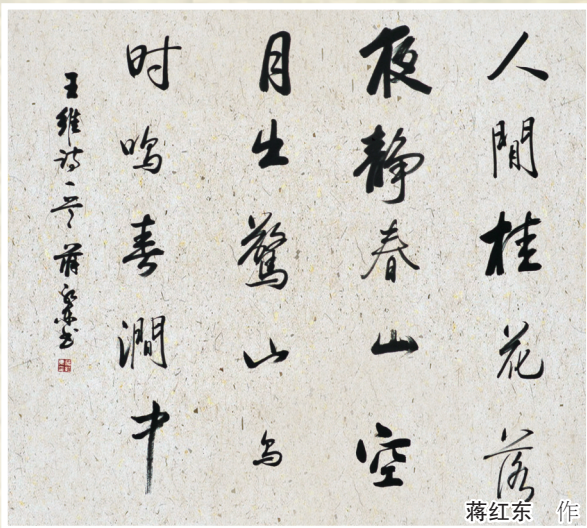 人閒桂花落
夜静春山空
月出驚山鸟
时鸣春澗中
王维诗一首 蒋红东书
蒋红东 作